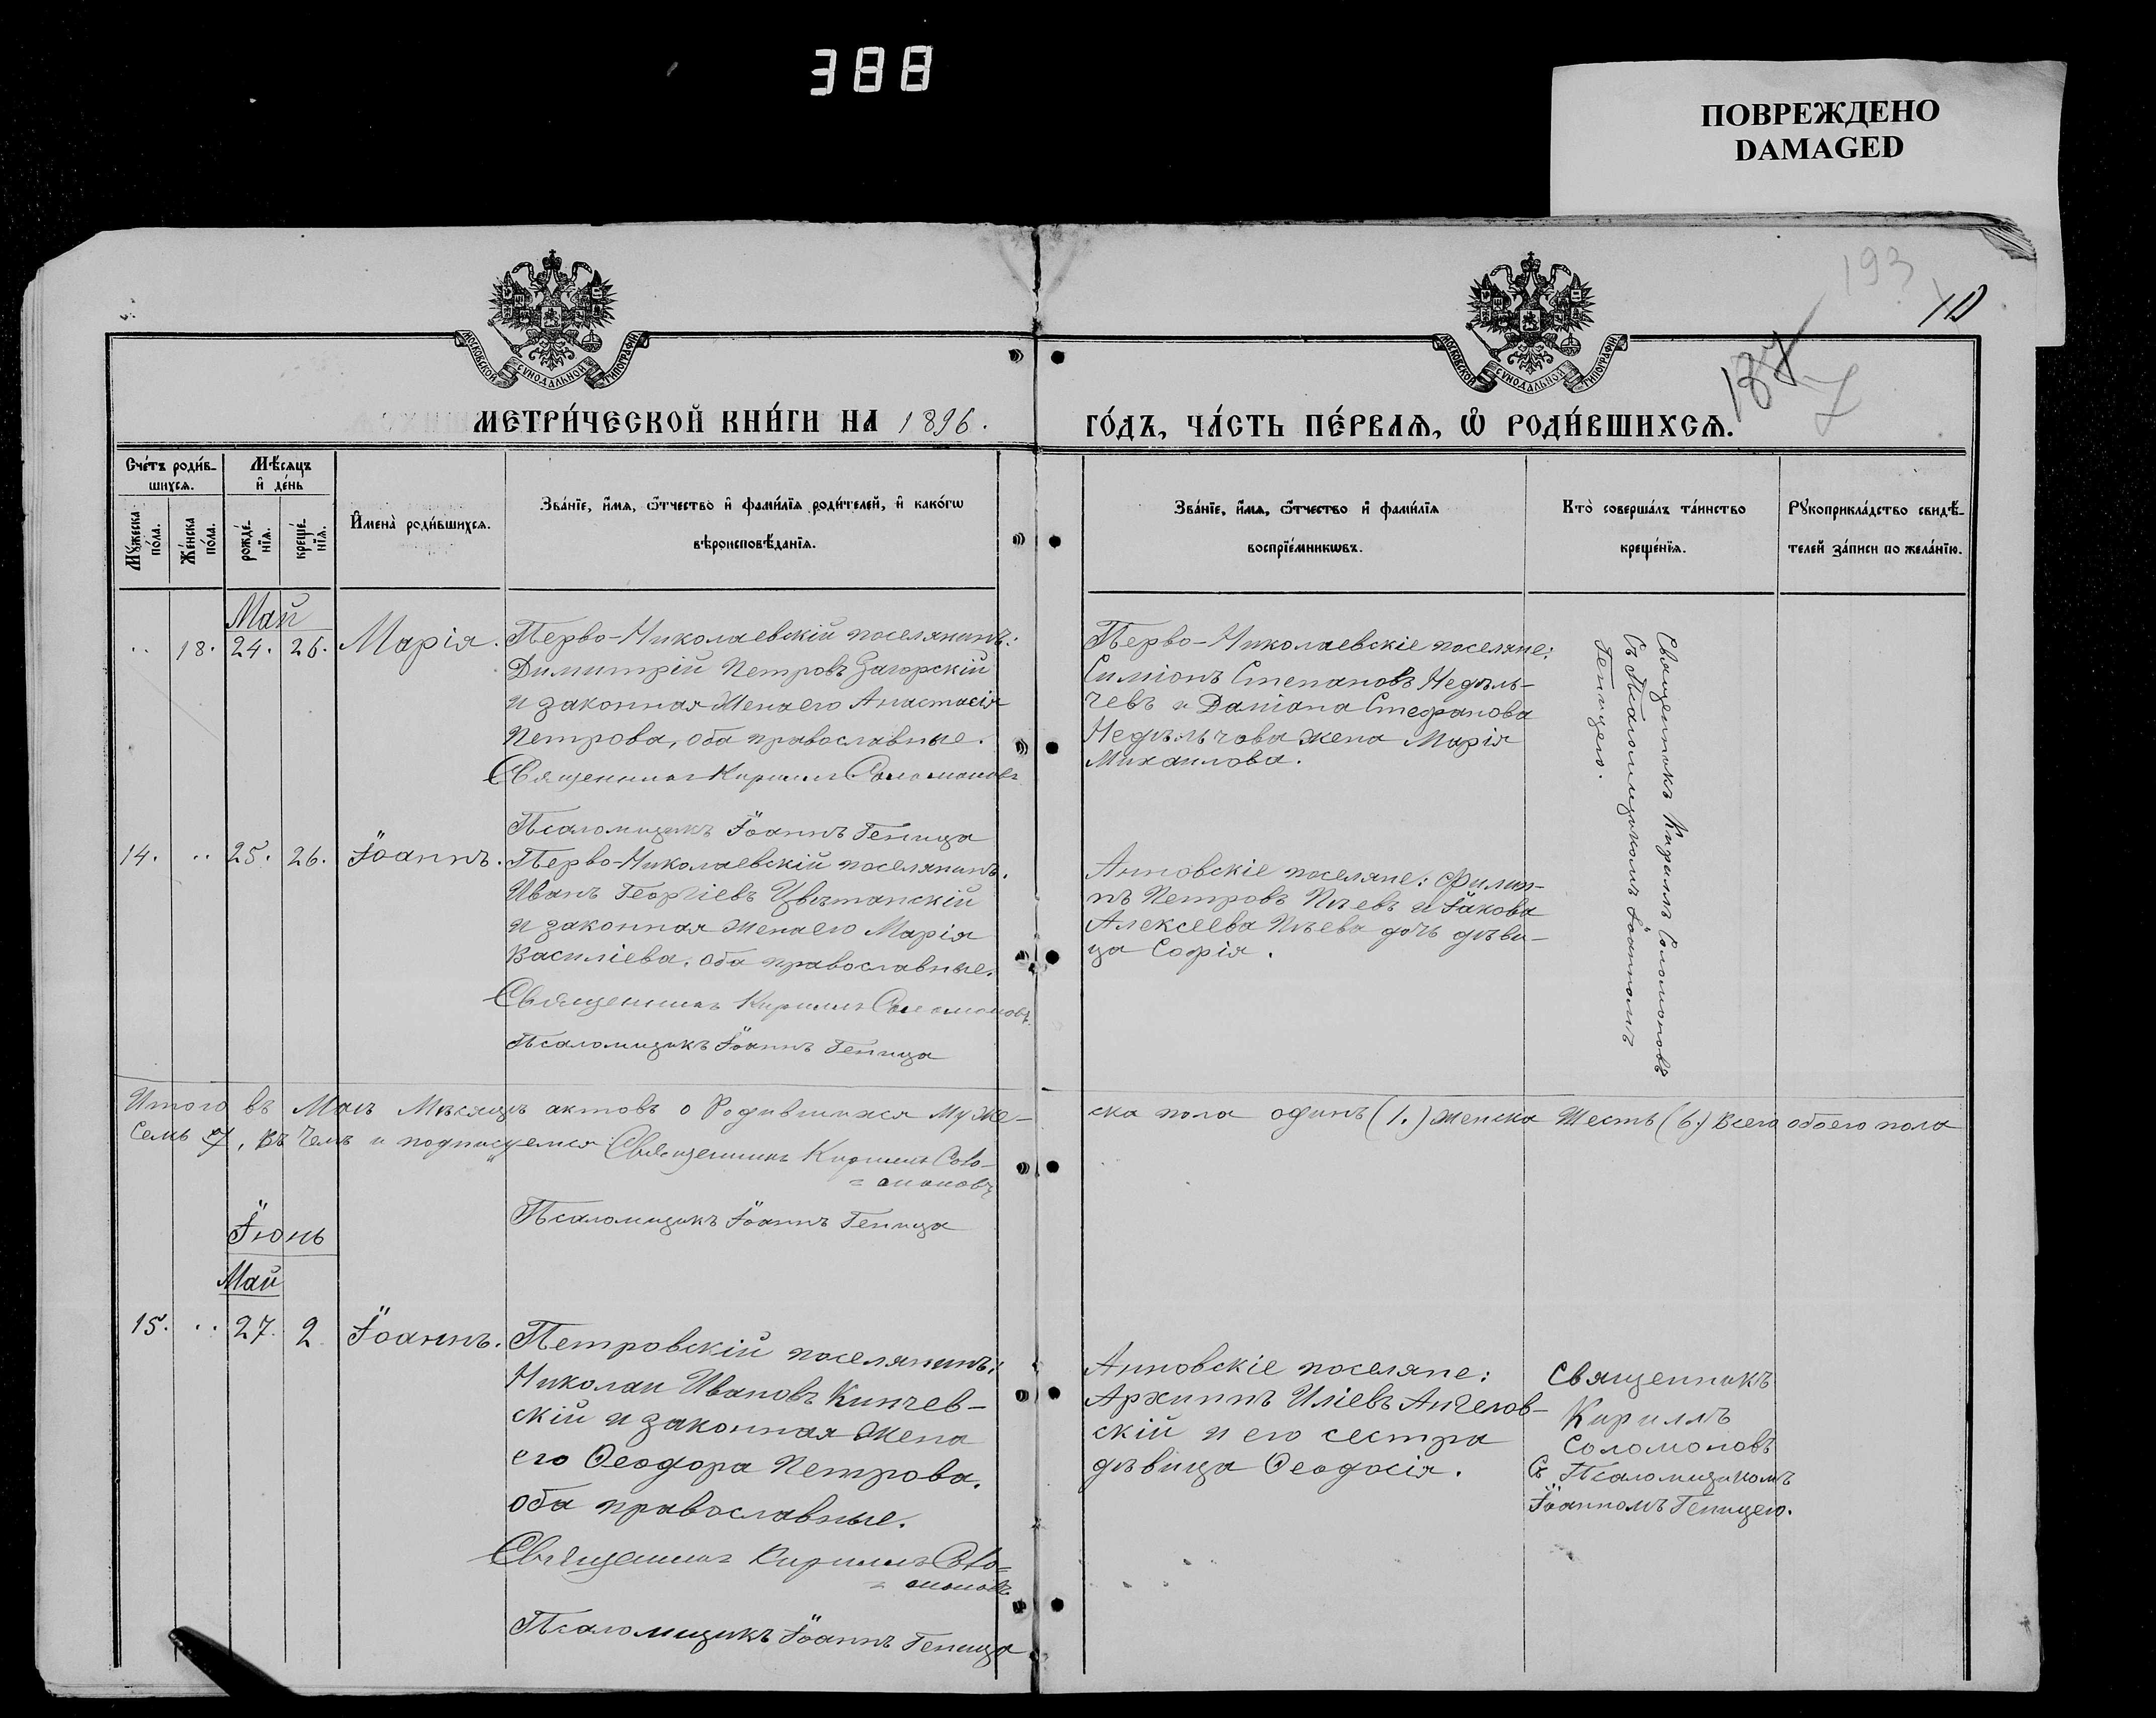 388
ПОВРЕЖДЕНО
DAMAGED
193
10
187
7
МОСКОВСКОЙ СѴНОДАЛЬНОЙ ТИПОГРАФІИ
МОСКОВСКОЙ СѴНОДАЛЬНОЙ ТИПОГРАФІИ
МЕТРИ́ЧЕСКОЙ КНИ́ГИ НА 1896.
ГО́ДЪ, ЧА́СТЬ ПЕ́РВАѦ, Ѡ҆ РОДИ́ВШИХСѦ.
Сче́тъ роди́в-
шихсѧ.
Мѣ́сѧцъ
и҆ де́нь
Мꙋ́жеска
по́ла.
Же́нска
по́ла.
рожде́-
нїѧ.
креще́-
нїѧ.
И҆мена̀ роди́вшихсѧ.
Зва́нїе, и҆́мѧ, ѻ҆́тчество и҆ фами́лїѧ роди́телей, и҆ како́гѡ
вѣроисповѣ́данїѧ.
Зва́нїе, и҆́мѧ, ѻ҆́тчество и҆ фами́лїѧ
воспрїе́мникѡвъ.
Кто̀ соверша́лъ та́инство
креще́нїѧ.
Рꙋкоприкла́дство свидѣ́-
телей за́писи по жела́нїю.
Май
.. 18. 24. 26. Марія.
Перво-Николаевскій поселянинъ:
Димитрій Петровъ Загорскій
и законная жена его Анастасія
Петрова, оба православные.
Священникъ Кириллъ Соломоновъ
Псаломщикъ Іоаннъ Геница
Перво-Николаевскіе поселяне:
Симіонъ Степановъ Недѣль-
чевъ и Даміана Стефанова
Недѣльчова жена Марія
Михаилова.
Священникъ Кириллъ Соломоновъ
Съ Псаломщикомъ Іоанномъ
Геницею.
14. .. 25. 26. Іоаннъ.
Перво-Николаевскій поселянинъ.
Иванъ Георгіевъ Цвѣтанскій
и законная жена его Марія
Василіева, оба православные.
Священникъ Кириллъ Соломоновъ.
Псаломщикъ Іоаннъ Геница
Анновскіе поселяне: Филип-
пъ Петровъ Пѣевъ и Іакова
Алексеева Пѣева дочь дѣви-
ца Софія.
Итого въ Маѣ Мѣсяцѣ актовъ о Родившихся муже-
ска пола одинъ (1.) женска Шесть (6.) Всего обоего пола
Семь 7, въ чемъ и подписуемся Священникъ Кириллъ Соло-
= моновъ
Псаломщикъ Іоаннъ Геница
Іюнь
Май
15. .. 27. 2 Іоаннъ.
Петровскій поселянинъ:
Николаи Ивановъ Кинчев-
скій и законная жена
его Ѳеодора Петрова.
оба православные.
Священникъ Кириллъ Соло=
= моновъ
Псаломщикъ Іоаннъ Геница
Анновскіе поселяне:
Архиппъ Иліевъ Ангелов-
скій и его сестра
дѣвица Ѳеодосія.
Священникъ
Кириллъ
Соломоновъ
Съ Псаломщикомъ
Іоанномъ Геницею.